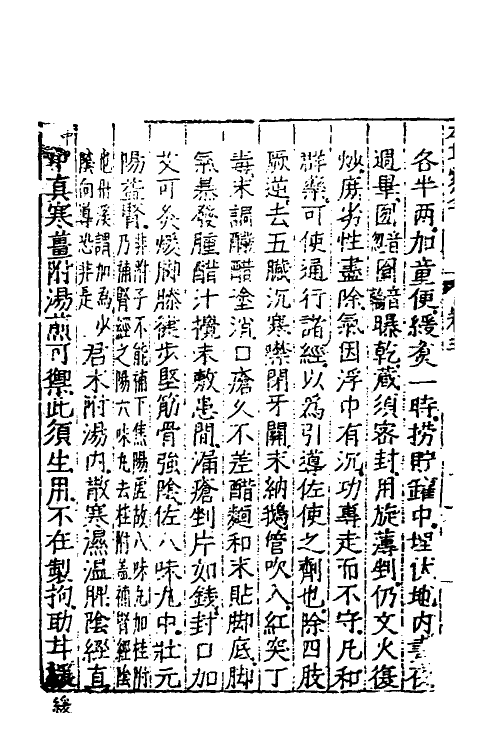 各半兩加童便緩煮一時撈貯鑵中埋伏地內晝夜
週畢囫圇曝乾藏須密封用旋薄剉仍文火復
炒庶劣性盡除氣因浮中有沉功專走而不守凡和
群藥可使通行諸經以為引導佐使之劑也除四肢
厥逆去五臟沉寒噤閉牙關末納鵝管吹入紅突丁
毒末調釅醋塗消口瘡久不差醋麵和末貼脚底脚
氣暴發腫醋汁攪末敷患間漏瘡剉片如錢封口加
艾可灸煖脚膝健步堅筋骨強陰佐八味丸中壯元
陽益腎非附子不能補下焦陽虛故八味丸加桂附
乃補腎經之陽六味丸去桂附蓋補腎經陰
也丹溪謂加為少
陰向導恐非是君朮附湯內散寒濕溫脾陰經直
中真寒薑附湯煎可禦此須生用不在製拘助甘緩
緣